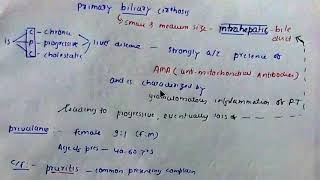 primary biliary cirrhosis
small & medium size - intrahepatic bile duct
is C - chronic
P - progressive
C - cholestatic
liver disease - strongly a/c presence of
AMA (anti-mitochondrial Antibodies)
and is characterized by
granulomatous inflammation of PT
leading to progressive, eventually loss of
prevalance - female 9:1 (F:M)
Age of pres - 40-60 y's
C/F - pruritis - common presenting complain